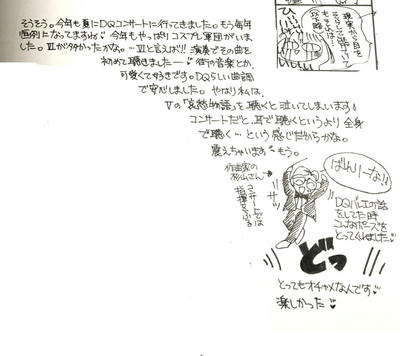 そうそう。今年も夏にDQコンサートに行ってきました。もう毎年
恒例になってますね♡ 今年もやっぱりコスプレ軍団がいま
した。Ⅶが多かったかな。…Ⅶと言えば!! 演奏でその曲を
初めて聴きました── 街の音楽とか、
可愛くて好きです。DQらしい曲調
で安心しました。やはり私は、
Ⅴの「哀愁物語」を聴くと泣いてしまいます。
コンサートだと、耳で聴くというより全身
で聴く…という感じだからかな。
震えちゃいます もう。
現実から目を
ばんりーな!!
作曲家の
すぎやまさん
コンサートでは
指揮をふる
DQバレエの話
をしてた時
こんなポーズを
とってくれました♡
どっ
とってもオチャメなんです♡
楽しかった♡